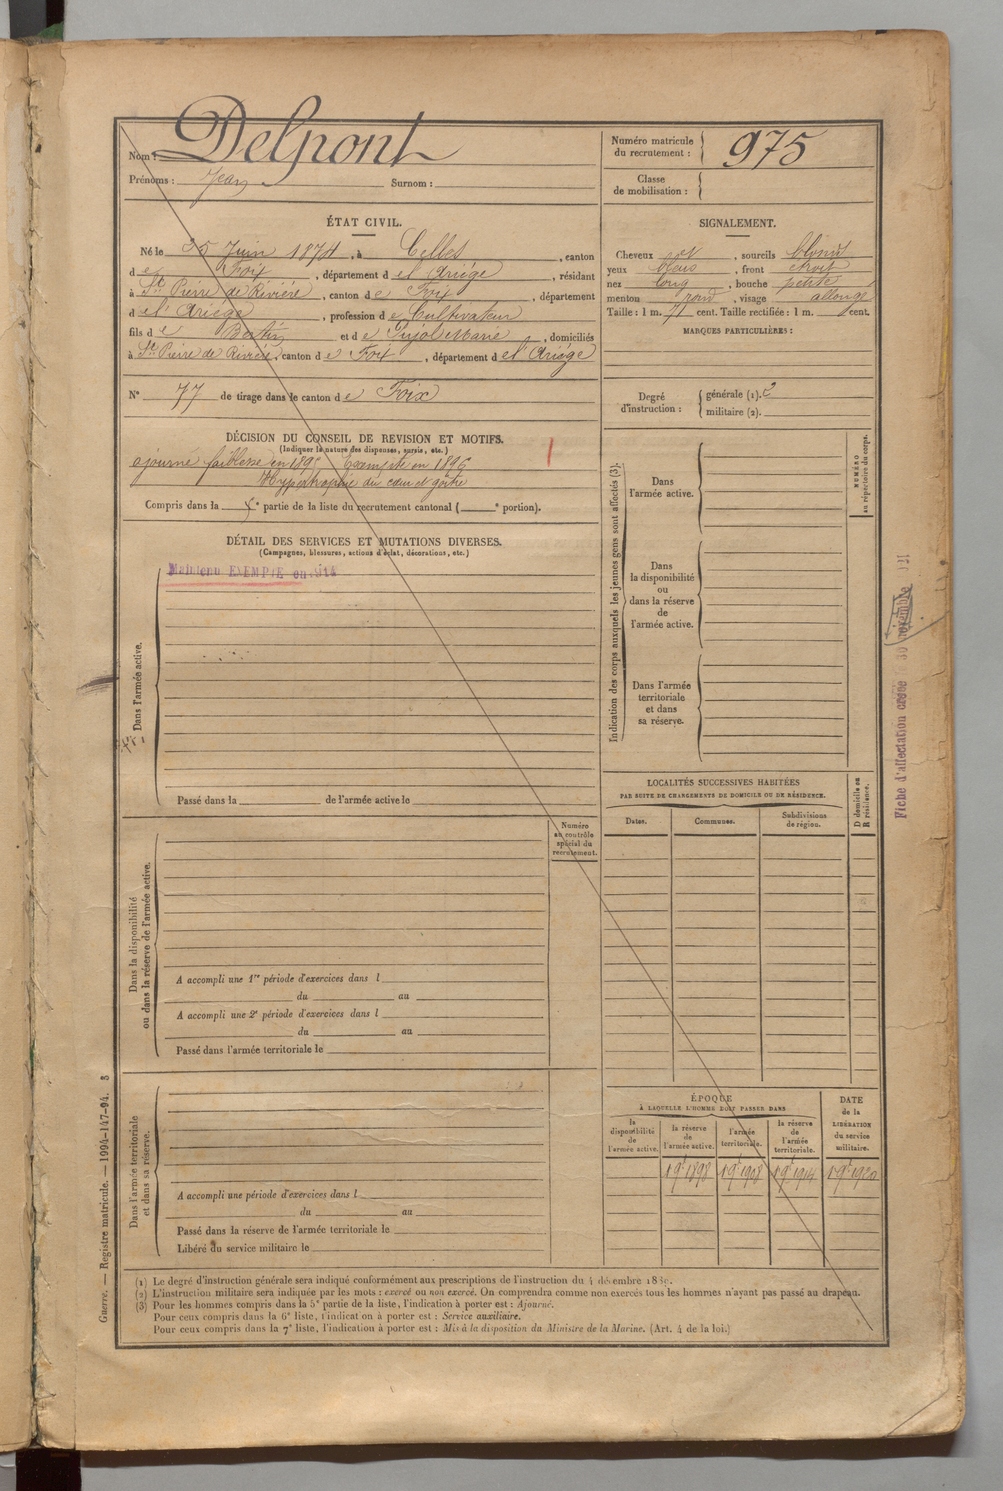 Nom : Delpont
Prénoms : Jean Surnom :
Numéro matricule
du recrutement : 975
Classe
de mobilisation :
ÉTAT CIVIL.
Né le 25 Juin 1874, à Celles, canton
de Foix, département de l'Ariège, résidant
à St Pierre de Rivière, canton de Foix, département
de l'Ariège, profession de Cultivateur
fils de et de Pujol Marie, domiciliés
à St Pierre de Rivière, canton de Foix, département de l'Ariège
N° 77 de tirage dans le canton de Foix
DÉCISION DU CONSEIL DE REVISION ET MOTIFS.
(Indiquer la nature des dispenses, sursis, etc.)
ajourné faiblesse en 1895 Exempté en 1896
Hypertrophie du cœur et goitre
Compris dans la e partie de la liste du recrutement cantonal ( e portion).
DÉTAIL DES SERVICES ET MUTATIONS DIVERSES.
(Campagnes, blessures, actions d'éclat, décorations, etc.)
Maintenu EXEMPTÉ en 914
Dans l'armée active.
Passé dans la de l'armée active le
Numéro
au contrôle
spécial du
recrutement.
Dans la disponibilité
ou dans la réserve de l'armée active.
A accompli une 1re période d'exercices dans l
du au
A accompli une 2e période d'exercices dans l
du au
Passé dans l'armée territoriale le
Dans l'armée territoriale
et dans sa réserve.
A accompli une période d'exercices dans l
du au
Passé dans la réserve de l'armée territoriale le
Libéré du service militaire le
SIGNALEMENT.
Cheveux et, sourcils blond
yeux bleus, front étroit
nez long, bouche petite
menton rond, visage allongé
Taille : 1 m. 71 cent. Taille rectifiée : 1 m. cent.
MARQUES PARTICULIÈRES :
Degré
d'instruction :
générale (1).
militaire (2).
Indication des corps auxquels les jeunes gens sont affectés (3).
NUMÉRO
au répertoire du corps.
Dans
l'armée active.
Dans
la disponibilité
ou
dans la réserve
de
l'armée active.
Dans l'armée
territoriale
et dans
sa réserve.
LOCALITÉS SUCCESSIVES HABITÉES
PAR SUITE DE CHANGEMENTS DE DOMICILE OU DE RÉSIDENCE.
D domicile ou
R résidence.
Dates. Communes. Subdivisions
de région.
ÉPOQUE
À LAQUELLE L'HOMME DOIT PASSER DANS
la
disponibilité
de
l'armée active.
la réserve
de
l'armée active.
l'armée
territoriale.
la réserve
de
l'armée
territoriale.
DATE
de la
LIBÉRATION
du service
militaire.
1898 1908 1914 1920
Fiche d'affectation créée 30 novembre
Guerre. — Registre matricule. — 1994-147-94. 3
(1) Le degré d'instruction générale sera indiqué conformément aux prescriptions de l'instruction du 4 décembre 1889.
(2) L'instruction militaire sera indiquée par les mots : exercé ou non exercé. On comprendra comme non exercés tous les hommes n'ayant pas passé au drapeau.
(3) Pour les hommes compris dans la 5e partie de la liste, l'indication à porter est : Ajourné.
Pour ceux compris dans la 6e liste, l'indication à porter est : Service auxiliaire.
Pour ceux compris dans la 7e liste, l'indication à porter est : Mis à la disposition du Ministre de la Marine. (Art. 4 de la loi.)